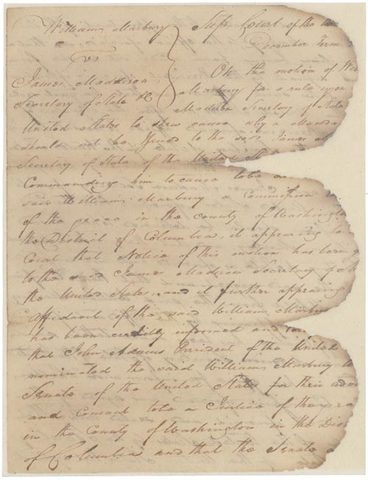 William Marbury } Sup Court of the
vs } December Term
James Maddison } On the motion of
Secretary of State } Marbury for a rule upon
United States to shew cause why a Manda
should not be issued to the said James
Secretary of State of the United
Commanding him to cause to be
said William Marbury a Commission
of the peace in the County of Washington
the District of Columbia it appearing to
Court that Notice of this motion has been
to the said James Madison Secretary of
the United States, and it further appearing
affidavit of the said William Marbury
has been informed and
that John Adams President of the United
nominated the said William Marbury to
Senate of the United States for their
and Consent to be a Justice of the
in the County of Washington in the Dis
of Columbia and that the Senate